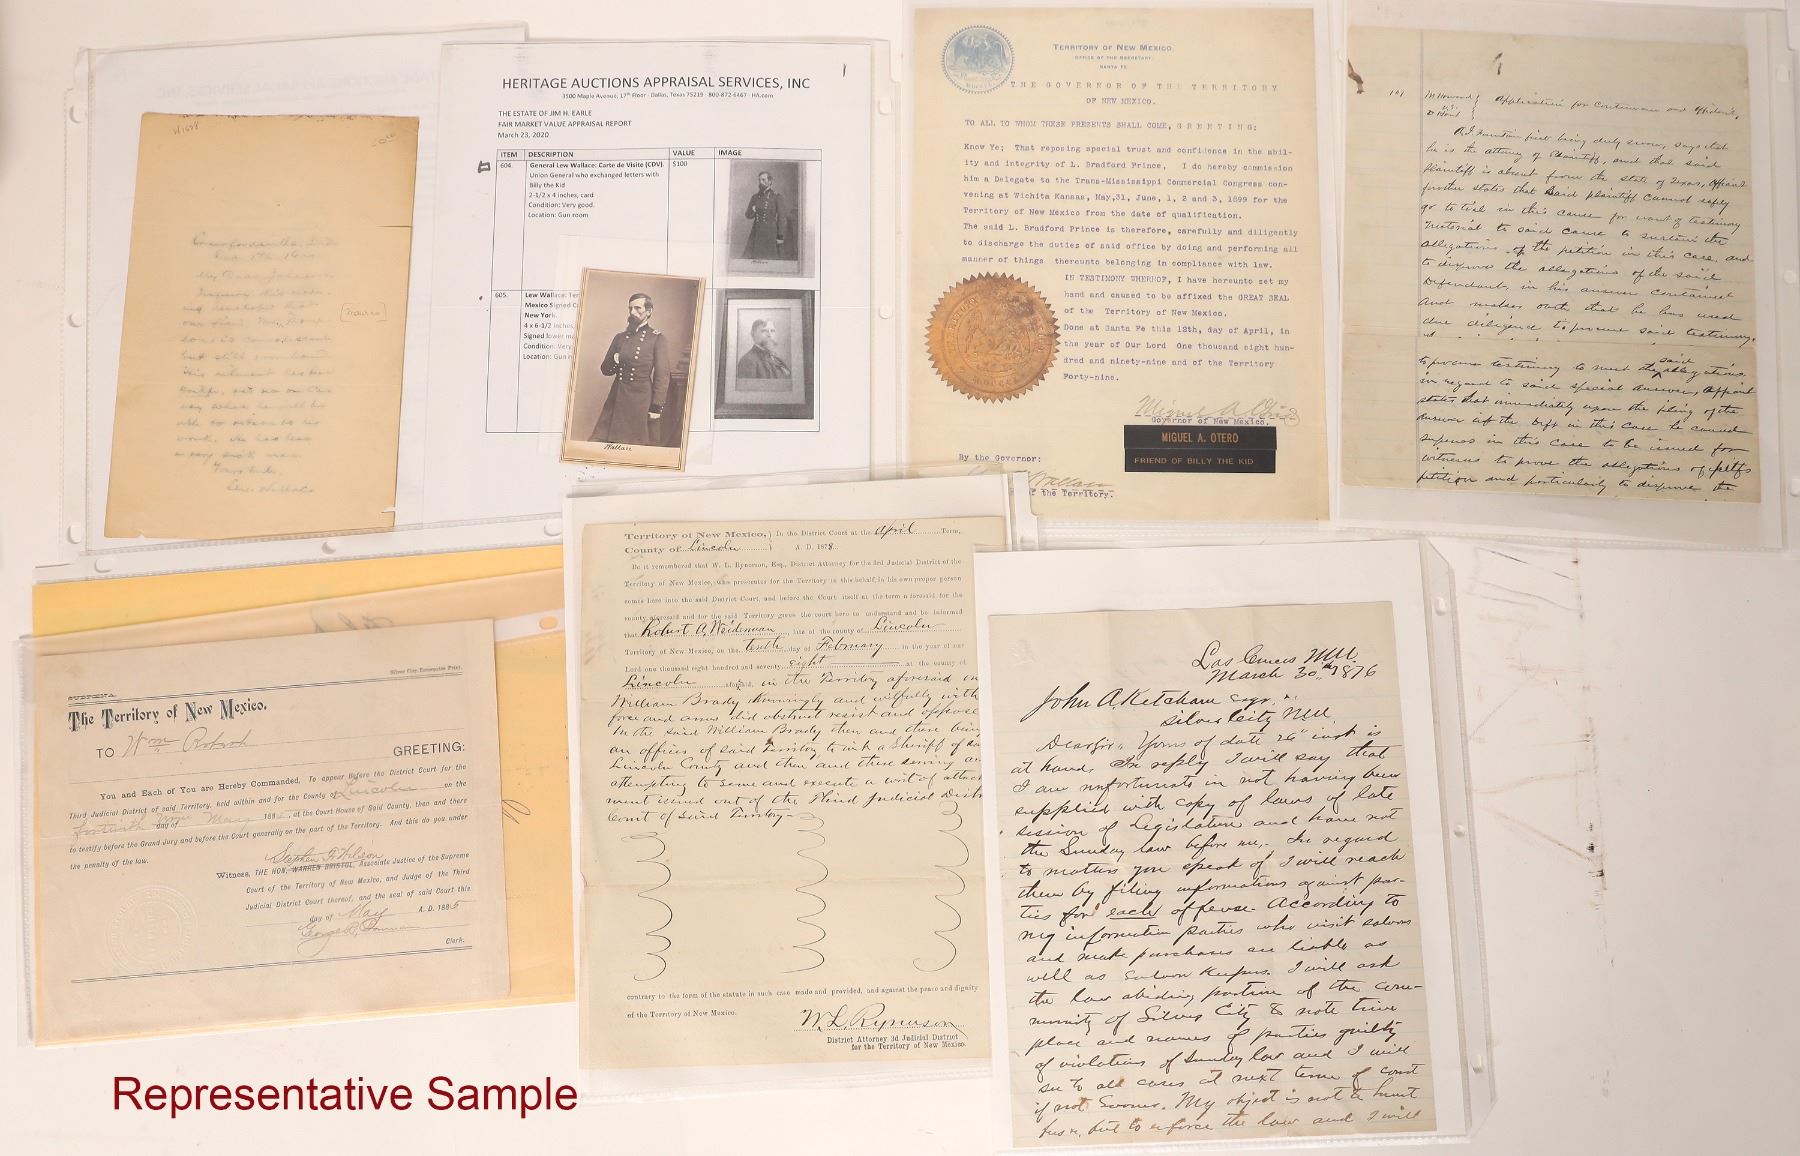 HERITAGE AUCTIONS APPRAISAL SERVICES, INC
3500 Maple Avenue, 17th Floor - Dallas, Texas 75219 - 800-872-6467 - HA.com
THE ESTATE OF JIM H. EARLE
FAIR MARKET VALUE APPRAISAL REPORT
March 23, 2020
ITEM DESCRIPTION VALUE IMAGE
604. General Lew Wallace: Carte de Visite (CDV). $100
Union General who exchanged letters with
Billy the Kid
2-1/2 x 4 inches, card
Condition: Very good.
Location: Gun room
Wallace
605. Lew Wallace: Ter
Mexico Signed C
New York.
4 x 6-1/2 inches,
Signed lower ma
Condition: Very
Location: Gun r
Wallace
Crawfordsville, Ind.
My Dear Johnson
but still confined
work. He has been
a very sick man
Yours truly,
Lew. Wallace
TERRITORY OF NEW MEXICO.
OFFICE OF THE SECRETARY.
SANTA FE.
THE GOVERNOR OF THE TERRITORY
OF NEW MEXICO.
TO ALL TO WHOM THESE PRESENTS SHALL COME, GREETING:
Know Ye; That reposing special trust and confidence in the abil-
ity and integrity of L. Bradford Prince, I do hereby commission
him a Delegate to the Trans-Mississippi Commercial Congress con-
vening at Wichita Kansas, May,31, June, 1, 2 and 3, 1899 for the
Territory of New Mexico from the date of qualification.
The said L. Bradford Prince is therefore, carefully and diligently
to discharge the duties of said office by doing and performing all
manner of things thereunto belonging in compliance with law.
IN TESTIMONY WHERHOF, I have hereunto set my
hand and caused to be affixed the GREAT SEAL
of the Territory of New Mexico.
Done at Santa Fe this 12th, day of April, in
the year of Our Lord One thousand eight hun-
dred and ninety-nine and of the Territory
Forty-nine.
Miguel A Otero
Governor of New Mexico.
MIGUEL A. OTERO
FRIEND OF BILLY THE KID
By the Governor:
Wallace
of the Territory.
Application for Continuance and Affidavit.
first being duly sworn, says that
he is the attorney of Plaintiff, and that said
plaintiff is absent from the state of Texas, Affiant
further states that Said plaintiff cannot safely
go to trial in this cause for want of testimony
material to said cause to sustain the
allegations of the petition in this case, and
to disprove the allegations of the said
Defendant, in his answer contained
And makes oath that he has used
due diligence to procure said testimony.
to procure testimony to meet the said allegations
in regard to said special answer, Affiant
states that immediately upon the filing of the
answer of the Deft in this case he caused
suppenas in this case to be issued for
witnesses to prove the allegations of pltfs
petition and particularly to disprove the
Silver City Enterprise Print.
SUBPŒNA.
The Territory of New Mexico.
TO Wm
GREETING:
You and Each of You are Hereby Commanded, To appear Before the District Court for the
Third Judicial District of said Territory, held within and for the County of Lincoln on the
day of May 188 , at the Court House of Said County, then and there
to testify before the Grand Jury and before the Court generally on the part of the Territory. And this do you under
the penalty of the law.
Stephen F. Wilson
Witness, THE HON. WARREN BRISTOL, Associate Justice of the Supreme
Court of the Territory of New Mexico, and Judge of the Third
Judicial District Court thereof, and the seal of said Court this
day of May A. D. 1885
George R. Bowman
Clerk.
Territory of New Mexico, } In the District Court at the April Term,
County of Lincoln } A. D. 1878.
Be it remembered that W. L. Rynerson, Esq., District Attorney for the 3rd Judicial District of the
Territory of New Mexico, who prosecutes for the Territory in this behalf, in his own proper person
comes here into the said District Court, and before the Court itself at the term aforesaid for the
county aforesaid and for the said Territory gives the court here to understand and be informed
that Robert A. Weidenman, late of the county of Lincoln
Territory of New Mexico, on the tenth day of February in the year of our
Lord one thousand eight hundred and seventy eight at the county of
Lincoln aforesaid, in the Territory aforesaid in
William Brady knowingly and wilfully with
force and arms did obstruct resist and oppose
he the said William Brady then and there being
an officer of said Territory to wit a Sheriff of sa
Lincoln County and then and there serving an
attempting to serve and execute a writ of attach
ment issued out of the Third Judicial Distr
Court of said Territory-
contrary to the form of the statute in such case made and provided, and against the peace and dignity
of the Territory of New Mexico.
W. L. Rynerson
District Attorney 3d Judicial District
for the Territory of New Mexico.
Las Cruces N.M.
March 30th 1876
John A Ketcham Esqr.
Silver City N.M.
Dear Sir: Yours of date 26" inst is
at hand. In reply I will say that
I am unfortunate in not having been
supplied with copy of laws of late
session of Legislature and have not
the Sunday law before me. In regard
to matters you speak of I will reach
them by filing informations against par-
ties for each offense. According to
my information parties who visit saloons
and make purchases are liable as
well as Saloon Keepers. I will ask
the law abiding portion of the com-
munity of Silver City to note time
place and names of parties guilty
of violations of Sunday law and I will
see to all cases at next term of court
if not sooner. My object is not to hunt
but to enforce the law and I will
Representative Sample